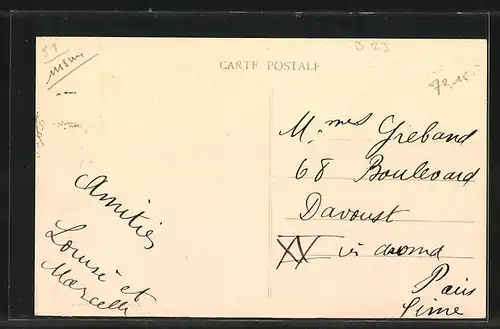 CARTE POSTALE
Amitiés
Louise et
Marcelle
Mmes Greband
68 Boulevard
Davoust
XX
Paris
Seine